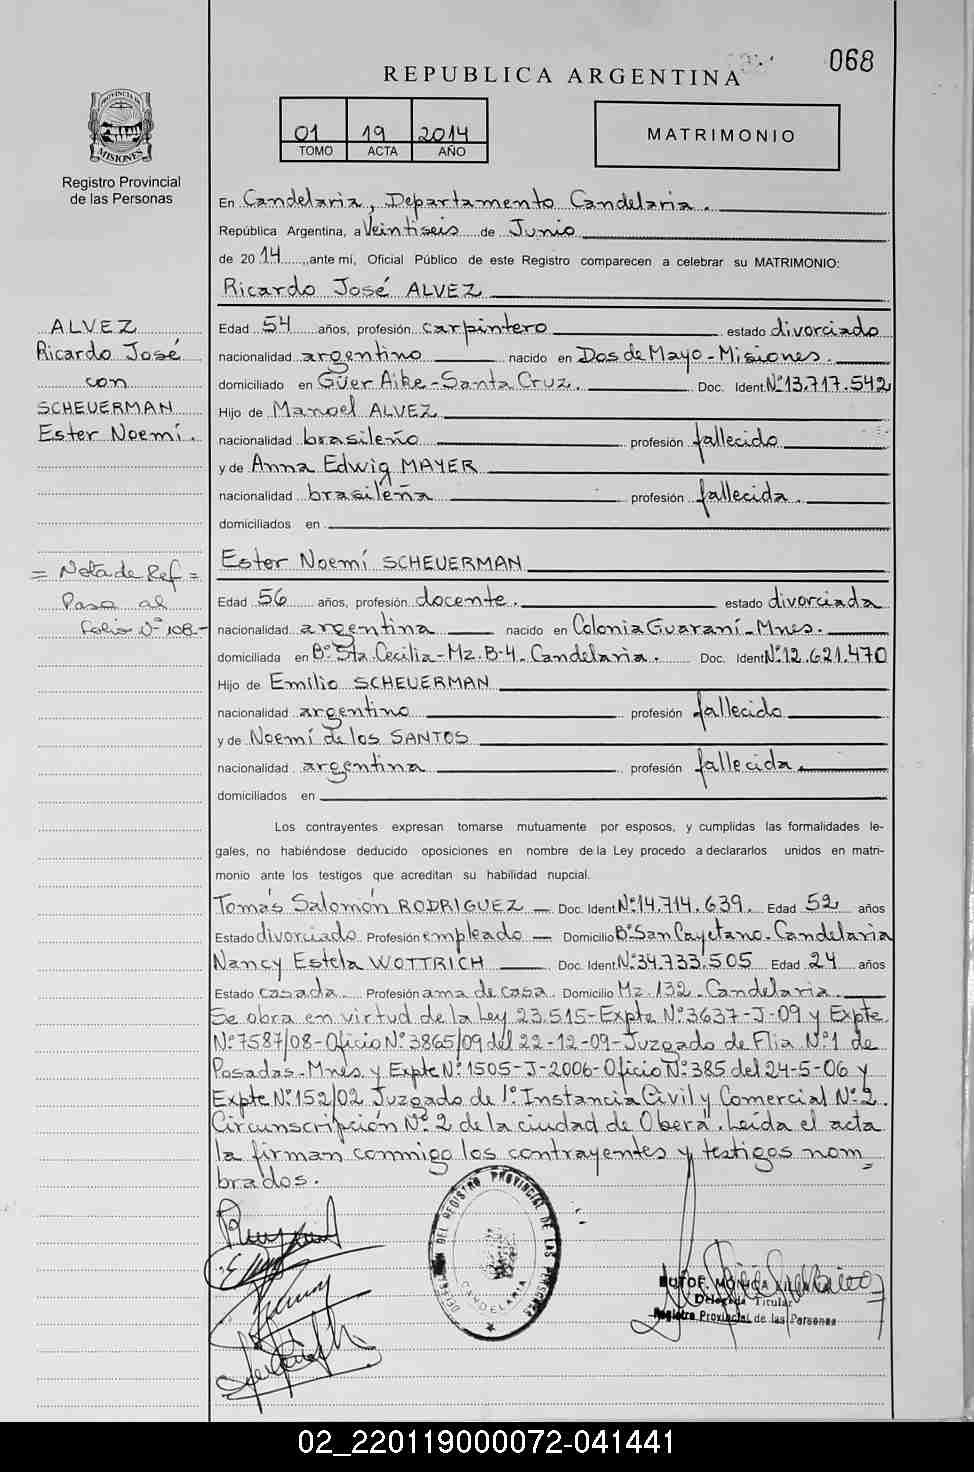 068
REPUBLICA ARGENTINA
PROVINCIA DE
MISIONES
Registro Provincial
de las Personas
01 19 2014
TOMO ACTA AÑO
MATRIMONIO
En Candelaria, Departamento Candelaria.
República Argentina, a Veintiseis de Junio
de 2014, ante mí, Oficial Público de este Registro comparecen a celebrar su MATRIMONIO:
Ricardo José ALVEZ
ALVEZ
Ricardo José
con
SCHEUERMAN
Ester Noemí.
Edad 54 años, profesión carpintero estado divorciado
nacionalidad argentino nacido en Dos de Mayo-Misiones.
domiciliado en Güer Aike-Santa Cruz. Doc. Ident Nº13.717.542
Hijo de Manoel ALVEZ
nacionalidad brasileño profesión fallecido
y de Anna Edwig MAYER
nacionalidad brasileña profesión fallecida.
domiciliados en
Ester Noemí SCHEUERMAN
= Nota de Ref =
Pasa al
folio Nº 108.-
Edad 56 años, profesión docente. estado divorciada
nacionalidad argentina nacido en Colonia Guaraní-Mnes.
domiciliada en Bº Sta. Cecilia-Mz. B-4. Candelaria. Doc. Ident Nº12.621.470
Hijo de Emilio SCHEUERMAN
nacionalidad argentino profesión fallecido
y de Noemí de los SANTOS
nacionalidad argentina profesión fallecida.
domiciliados en
Los contrayentes expresan tomarse mutuamente por esposos, y cumplidas las formalidades le-
gales, no habiéndose deducido oposiciones en nombre de la Ley procedo a declararlos unidos en matri-
monio ante los testigos que acreditan su habilidad nupcial.
Tomás Salomón RODRIGUEZ Doc. Ident Nº14.714.639. Edad 52 años
Estado divorciado Profesión empleado Domicilio Bº San Cayetano. Candelaria
Nancy Estela WOTTRICH Doc. Ident Nº34.733.505 Edad 24 años
Estado casada. Profesión ama de casa. Domicilio Mz. 132. Candelaria.
Se obra en virtud de la Ley 23.515-Expte Nº3637-J-09 y Expte
Nº7587/08-Oficio Nº3865/09 del 22-12-09-Juzgado de Flia Nº1 de
Posadas-Mnes y Expte Nº1505-J-2006-Oficio Nº385 del 24-5-06 y
Expte Nº152/02 Juzgado de 1º Instancia Civil y Comercial Nº2.
Circunscripción Nº2 de la ciudad de Oberá. Leída el acta
la firman conmigo los contrayentes y testigos nom=
brados.
DELEGACION DEL REGISTRO PROVINCIAL DE LAS PERSONAS
CANDELARIA
Delegada Titular
Registro Provincial de las Personas
02_220119000072-041441